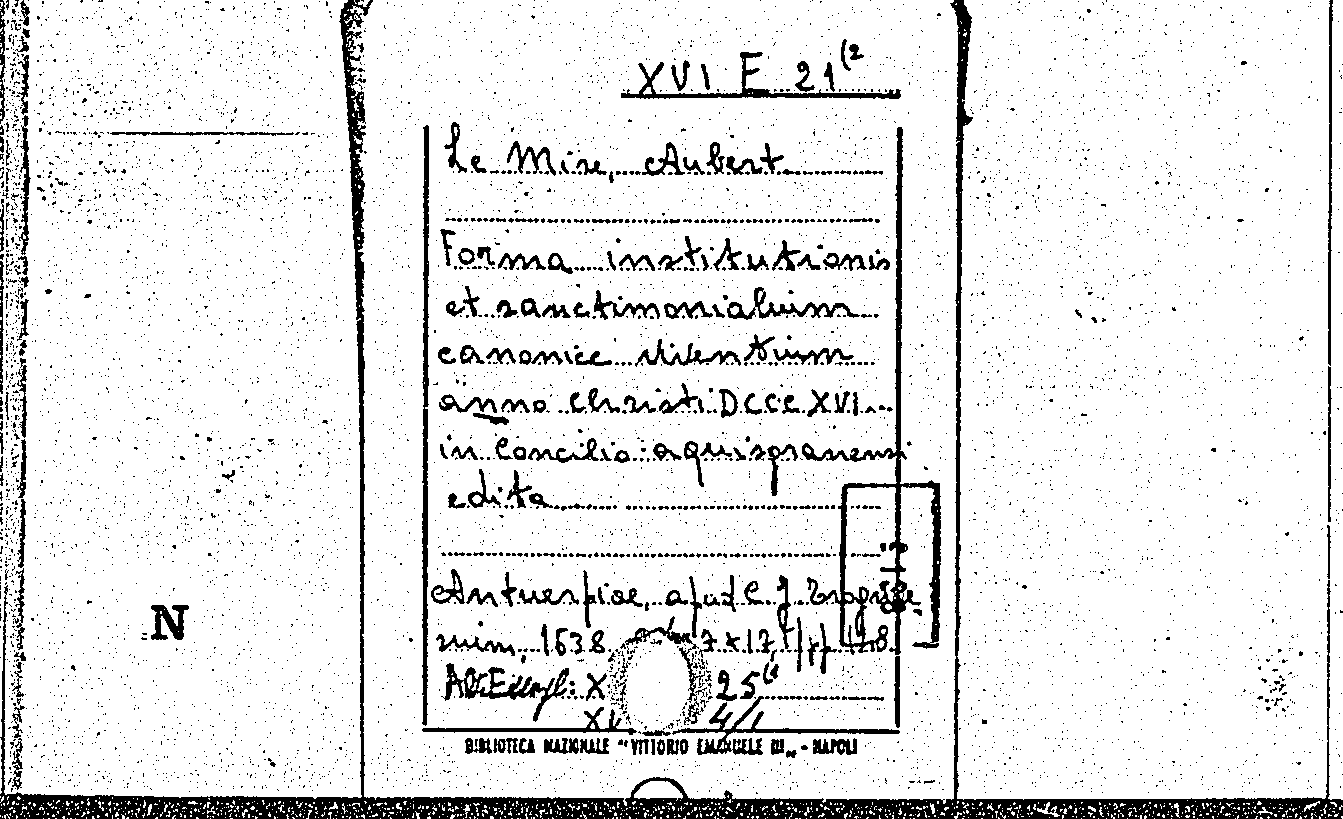 XVI E 21(2
Le Mire, Aubert
Forma institutionis
et sanctimonialium
canonice viventium
anno Christi DCCCXVI
in Concilio aquisgranensi
edita
Antuerpiae, apud C. J.
1638
25(
N
XV 4/1
BIBLIOTECA NAZIONALE "VITTORIO EMANUELE III„ - NAPOLI